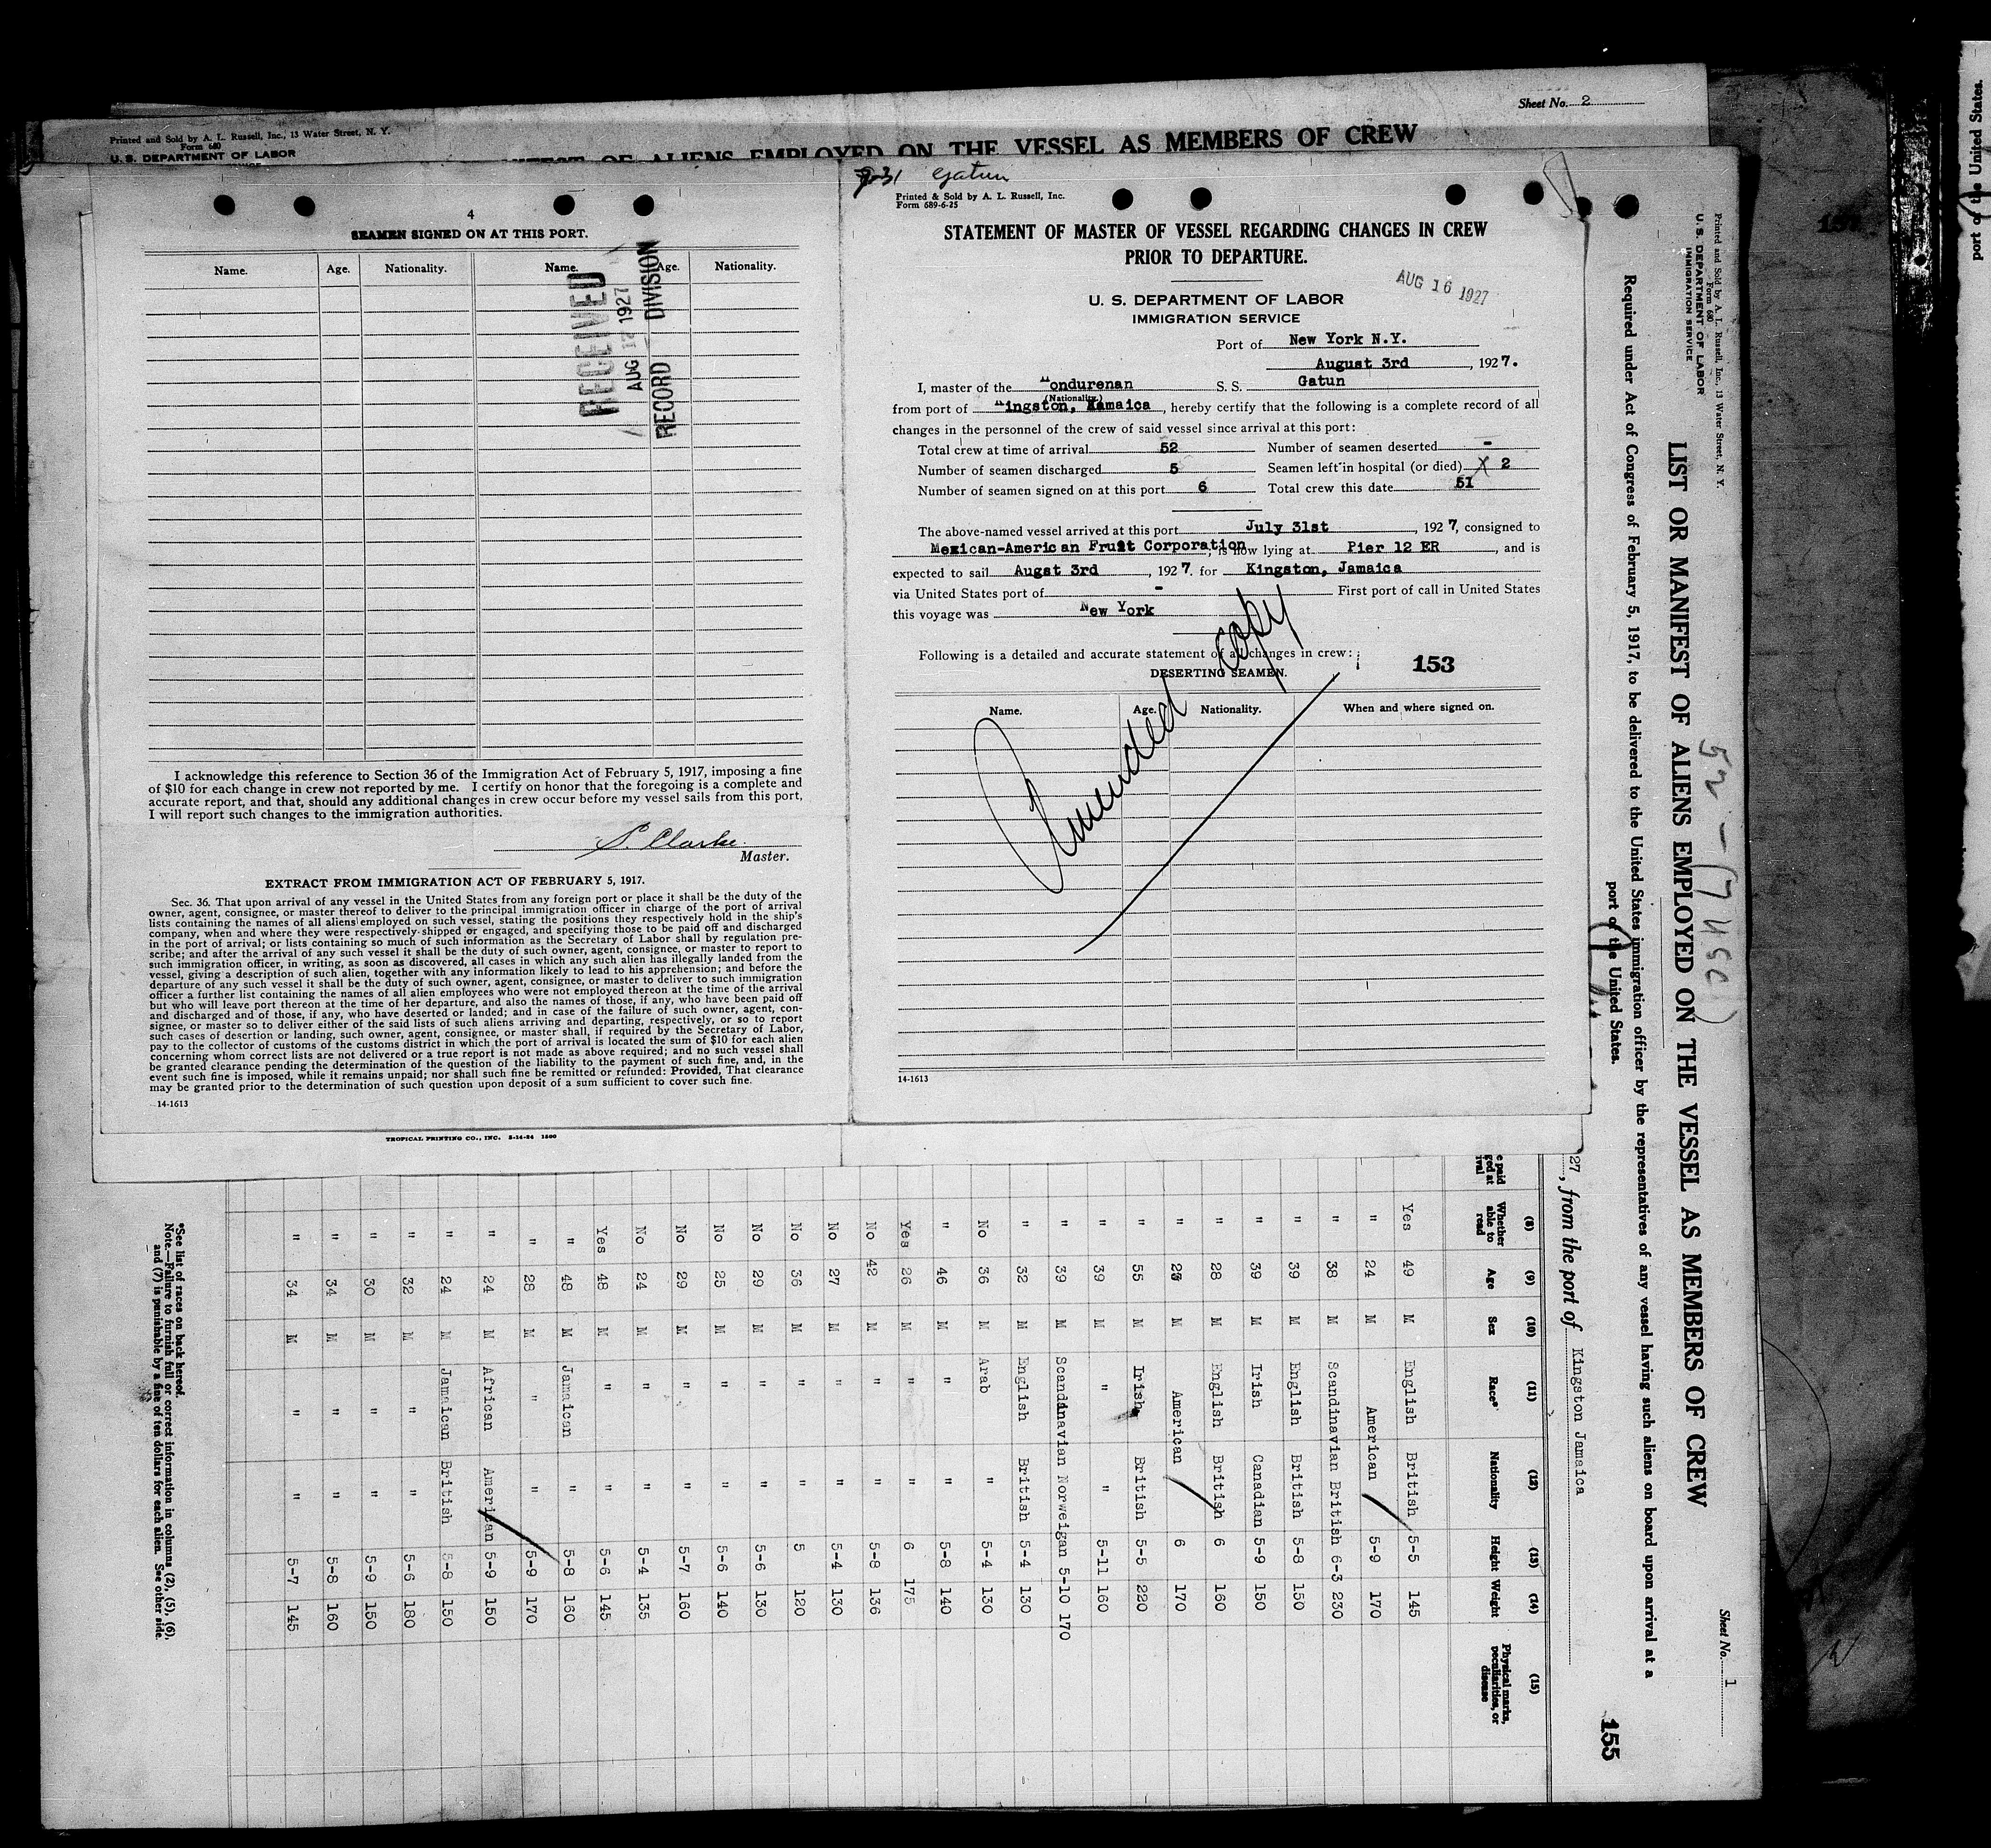 Sheet No. 2
Printed and Sold by A. L. Russell, Inc., 13 Water Street, N. Y.
Form 680
U. S. DEPARTMENT OF LABOR
OF ALIENS EMPLOYED ON THE VESSEL AS MEMBERS OF CREW
4
SEAMEN SIGNED ON AT THIS PORT.
Name. Age. Nationality. Name. Age. Nationality.
RECEIVED
AUG 1927
RECORD DIVISION
I acknowledge this reference to Section 36 of the Immigration Act of February 5, 1917, imposing a fine
of $10 for each change in crew not reported by me. I certify on honor that the foregoing is a complete and
accurate report, and that, should any additional changes in crew occur before my vessel sails from this port,
I will report such changes to the immigration authorities.
S. Clarke
Master.
EXTRACT FROM IMMIGRATION ACT OF FEBRUARY 5, 1917.
Sec. 36. That upon arrival of any vessel in the United States from any foreign port or place it shall be the duty of the
owner, agent, consignee, or master thereof to deliver to the principal immigration officer in charge of the port of arrival
lists containing the names of all aliens employed on such vessel, stating the positions they respectively hold in the ship's
company, when and where they were respectively shipped or engaged, and specifying those to be paid off and discharged
in the port of arrival; or lists containing so much of such information as the Secretary of Labor shall by regulation pre-
scribe; and after the arrival of any such vessel it shall be the duty of such owner, agent, consignee, or master to report to
such immigration officer, in writing, as soon as discovered, all cases in which any such alien has illegally landed from the
vessel, giving a description of such alien, together with any information likely to lead to his apprehension; and before the
departure of any such vessel it shall be the duty of such owner, agent, consignee, or master to deliver to such immigration
officer a further list containing the names of all alien employees who were not employed thereon at the time of the arrival
but who will leave port thereon at the time of her departure, and also the names of those, if any, who have been paid off
and discharged and of those, if any, who have deserted or landed; and in case of the failure of such owner, agent, con-
signee, or master so to deliver either of the said lists of such aliens arriving and departing, respectively, or so to report
such cases of desertion or landing, such owner, agent, consignee, or master shall, if required by the Secretary of Labor,
pay to the collector of customs of the customs district in which the port of arrival is located the sum of $10 for each alien
concerning whom correct lists are not delivered or a true report is not made as above required; and no such vessel shall
be granted clearance pending the determination of the question of the liability to the payment of such fine, and, in the
event such fine is imposed, while it remains unpaid; nor shall such fine be remitted or refunded: Provided, That clearance
may be granted prior to the determination of such question upon deposit of a sum sufficient to cover such fine.
14-1613
TROPICAL PRINTING CO., INC. 5-14-24 1500
7-31 Gatun
Printed & Sold by A. L. Russell, Inc.
Form 689-6-25
STATEMENT OF MASTER OF VESSEL REGARDING CHANGES IN CREW
PRIOR TO DEPARTURE.
AUG 16 1927
U. S. DEPARTMENT OF LABOR
IMMIGRATION SERVICE
Port of New York N.Y.
August 3rd, 1927.
I, master of the Hondurenan S. S. Gatun
(Nationality.)
from port of Kingston, Jamaica, hereby certify that the following is a complete record of all
changes in the personnel of the crew of said vessel since arrival at this port:
Total crew at time of arrival 52 Number of seamen deserted -
Number of seamen discharged 5 Seamen left in hospital (or died) X 2
Number of seamen signed on at this port 6 Total crew this date 51
The above-named vessel arrived at this port July 31st, 1927, consigned to
Mexican-American Fruit Corporation, is now lying at Pier 12 ER, and is
expected to sail Augst 3rd, 1927. for Kingston, Jamaica
via United States port of - First port of call in United States
this voyage was New York
Following is a detailed and accurate statement of all changes in crew:
153
DESERTING SEAMEN.
Name. Age. Nationality. When and where signed on.
Amended copy
14-1613
Printed and Sold by A. L. Russell, Inc., 13 Water Street, N. Y.
Form 680
U. S. DEPARTMENT OF LABOR
IMMIGRATION SERVICE
Sheet No. 1
52 - (7 USC)
LIST OR MANIFEST OF ALIENS EMPLOYED ON THE VESSEL AS MEMBERS OF CREW
Required under Act of Congress of February 5, 1917, to be delivered to the United States immigration officer by the representatives of any vessel having such aliens on board upon arrival at a
port of the United States.
155
27, from the port of Kingston Jamaica
(8) (9) (10) (11) (12) (13) (14) (15)
Whether able to read Age Sex Race* Nationality Height Weight Physical marks, peculiarities, or disease
Yes 49 M English British 5-5 145
" 24 M American 5-9 170
" 38 M Scandinavian British 6-3 230
" 39 M English British 5-8 150
" 39 M Irish Canadian 5-9 150
" 28 M English British 6 160
" M American 6 170
" 55 M Irish British 5-5 220
" 39 M " " 5-11 160
" 39 M Scandinavian Norweigan 5-10 170
" 32 M English British 5-4 130
No 36 M Arab " 5-4 130
" 46 M " " 5-8 140
Yes 26 M " " 6 175
No 42 M " " 5-8 136
No 27 M " " 5-4 130
No 36 M " " 5 120
No 29 M " " 5-6 130
No 25 M " " 5-6 140
No 29 M " " 5-7 160
No 24 M " " 5-4 135
Yes 48 M " " 5-6 145
" 48 M Jamaican " 5-8 160
" 28 M " " 5-9 170
" 24 M African American 5-9 150
" 24 M Jamaican British 5-8 150
" 32 M " " 5-6 180
" 30 M " " 5-9 150
" 34 M " " 5-8 160
" 34 M " " 5-7 145
*See list of races on back hereof.
Note.—Failure to furnish full or correct information in columns (2), (5), (6),
and (7) is punishable by a fine of ten dollars for each alien. See other side.
port of the United States.